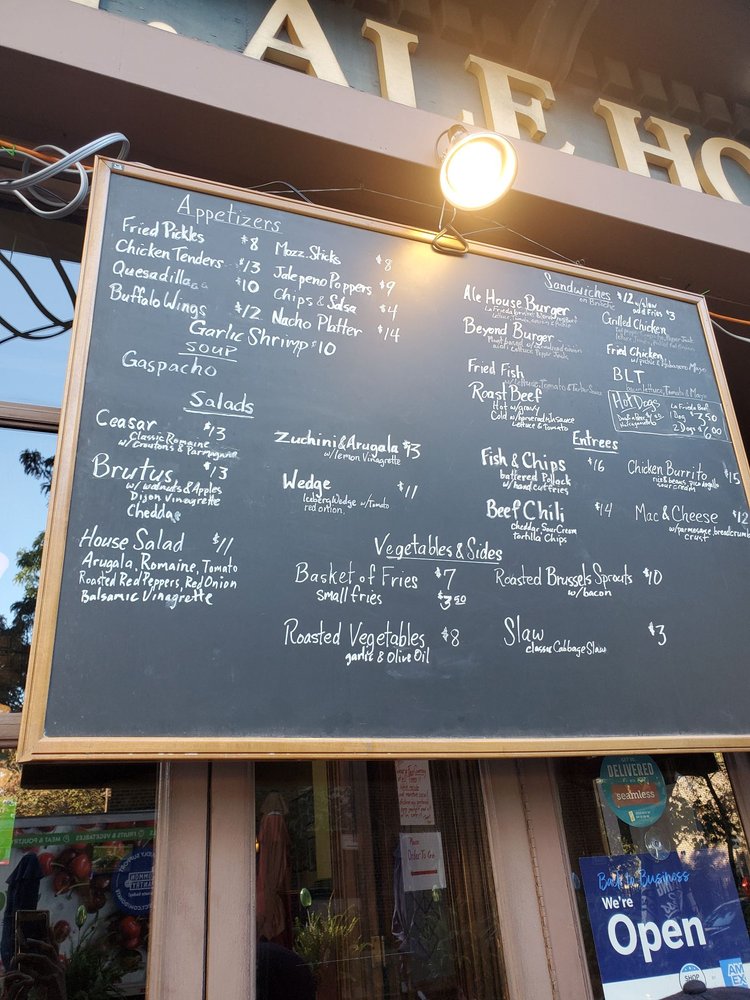 ALE HO
Appetizers
Fried Pickles $8
Chicken Tenders $13
Quesadilla $10
Buffalo Wings $12
Mozz. Sticks $8
Jalepeno Poppers $9
Chips & Salsa $4
Nacho Platter $14
Garlic Shrimp $10
SOUP
Gaspacho
Salads
Ceasar $13
Classic Romaine
w/croutons & Parmagiana
Brutus $13
w/walnuts & Apples
Dijon Vinaigrette
Cheddar
House Salad $11
Arugala, Romaine, Tomato
Roasted Red Peppers, Red Onion
Balsamic Vinagrette
Zuchini & Arugala $13
w/lemon Vinagrette
Wedge $11
Iceberg Wedge w/Tomato
red onion.
Sandwiches $12 w/slaw
on Brioche add Fries $3
Ale House Burger
Beyond Burger
Fried Fish
w/lettuce, Tomato & Tartar Sauce
Roast Beef
Hot w/gravy
Cold w/horseradish sauce
Lettuce & tomato
Grilled Chicken
Fried Chicken
w/pickle & Habanero Mayo
BLT
lettuce, Tomato & Mayo
Hot Dogs La Frieda Beef
1 Dog $3.50
2 Dogs $6.00
Entrees
Fish & Chips $16
battered Pollock
w/hand cut fries
Beef Chili $14
cheddar Sour Cream
tortilla Chips
Chicken Burrito $15
rice & beans, Pico de gallo
sour cream
Mac & Cheese $12
w/parmesage breadcrumb
crust
Vegetables & Sides
Basket of Fries $7
small fries $3.50
Roasted Brussels Sprouts $10
w/bacon
Roasted Vegetables $8
garlic & Olive Oil
Slaw $3
classic Cabbage Slaw
DELIVERED
seamless
Please
Order To Go
FRUITS & VEGETABLES MEAT & POULTRY
COMMON
Back to Business
We're
Open
SHOP
AM
EX